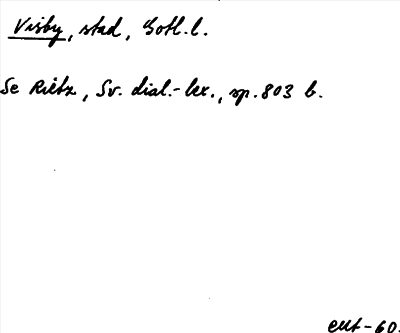 Visby, stad, Gotl. l.
Se Rietz, Sv. dial.-lex., sp. 803 b.
-60.